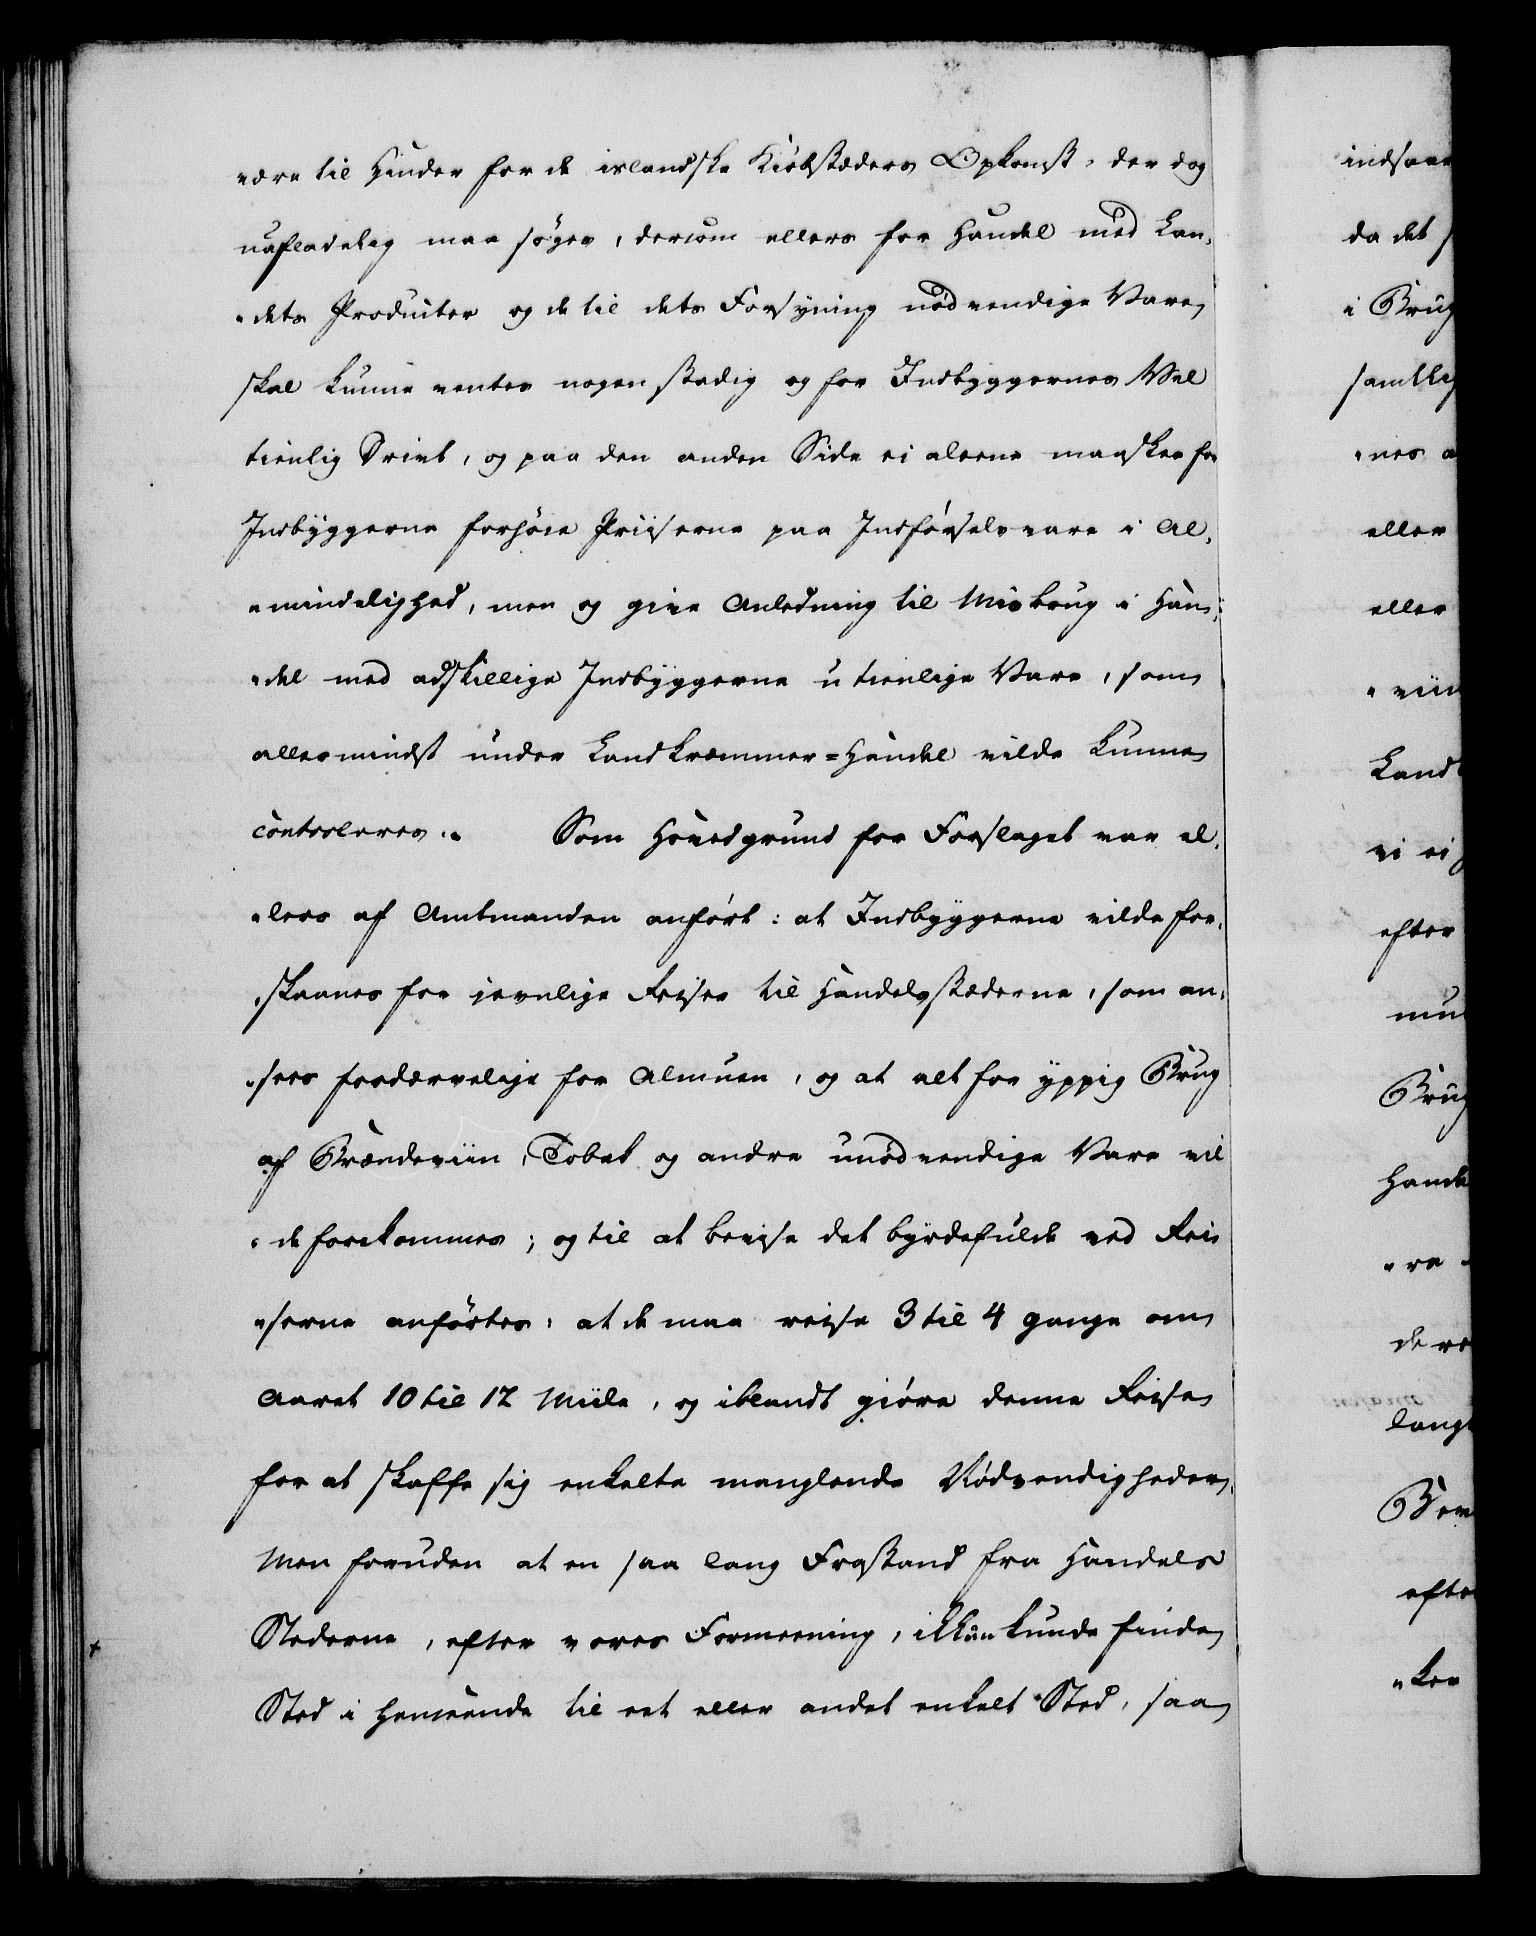 være til Hinder for de islandske Kiöbstæders Opkomst, der dog
uafladelig maa søges, dersom ellers for Handel med Lan-
„dets Producter og de til dets Forsyning nødvendige Vare,
skal kunne ventes nogen stadig og for Indbyggernes Vel
tienlig Drivt, og paa den anden Side ei aleene maaskee for
Indbyggerne forhöie Priiserne paa Indförselsvare i Al-
„mindelighed, men og give Anledning til Misbrug i Han-
„del med adskillige Indbyggerne utienlige Vare, som
allermindst under Landkræmmer=Handel vilde kunne
controleres.„ Som Hovedgrund for Forslaget var el-
„lers af Amtmanden anfört: at Indbyggerne vilde for-
„skaanes for jevnlige Reiser til Handelsstæderne, som an-
„sees fordærvelige for Almuen, og at alt for yppig Brug
af Brændeviin, Tobak og andre unödvendige Vare vil
„de forekommes; og til at beviise det byrdefulde ved Rei
„serne anförtes: at de maa reise 3 til 4 gange om
Aaret 10 til 12 Miile, og iblandt giöre denne Reise
for at skaffe sig enkelte manglende Nödvendigheder.
Men foruden at en saa lang Frastand fra Handels
Stederne, efter vores Formeening, ikkun kunde finde
Sted i Henseende til eet eller andet enkelt Sted, saa
indsaae
da det
i Brug
samtlig
„nes
eller
eller
„viin
Land
vi ei
efter
mu
Brug
Hand
„re
de
lang
efte
„ker